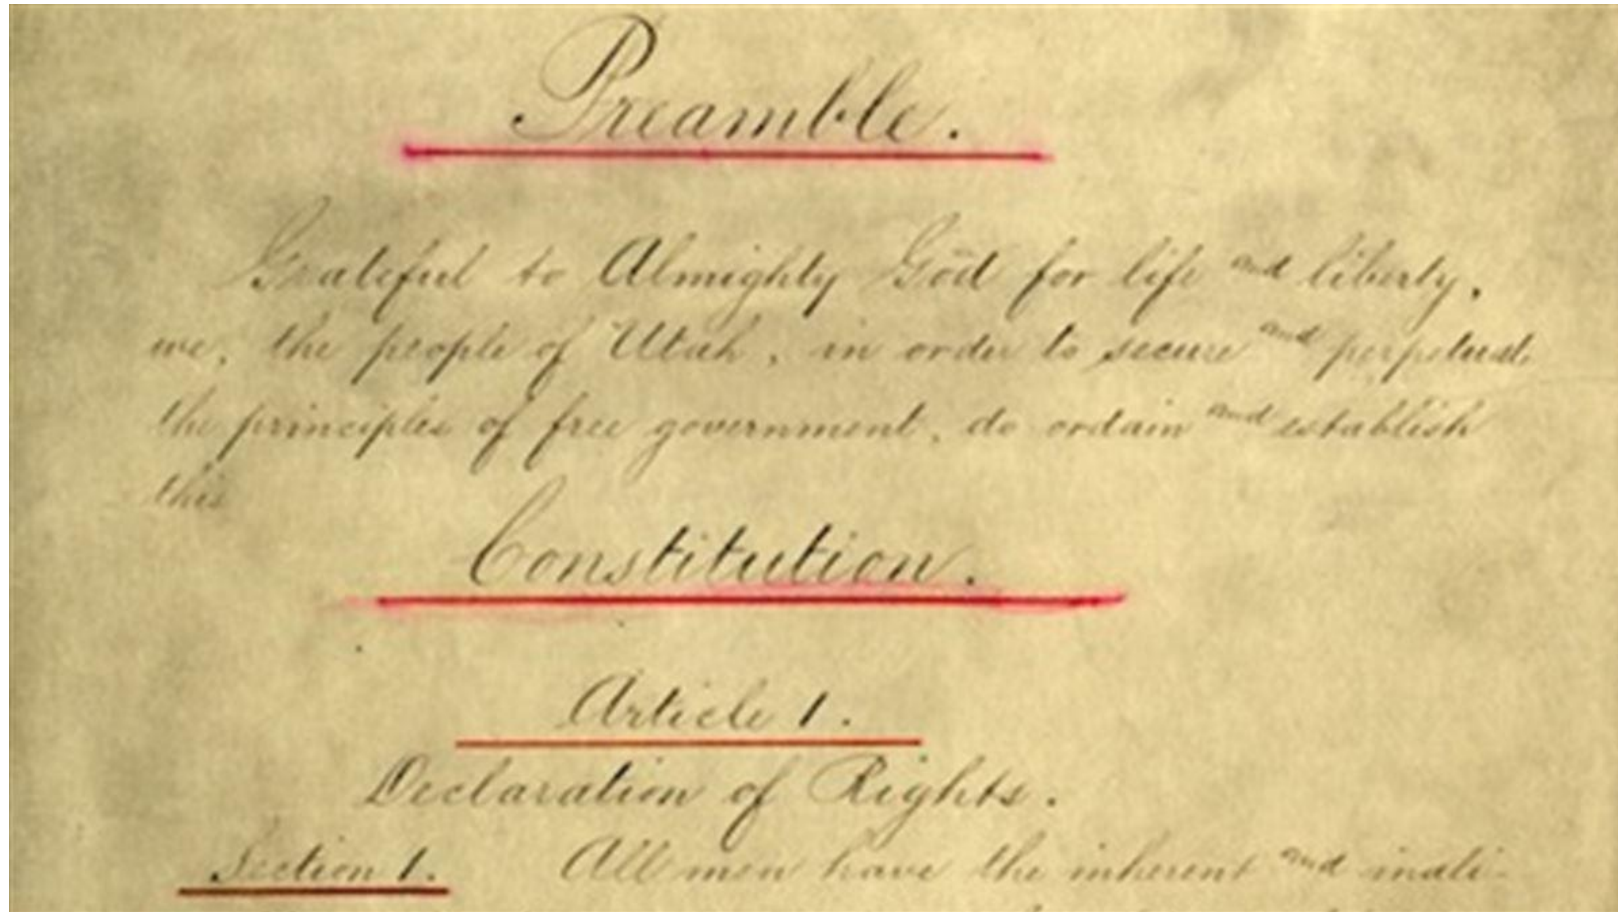 Preamble.
Grateful to Almighty God for life and liberty,
we, the people of Utah, in order to secure and perpetuate
the principles of free government, do ordain and establish
this
Constitution.
Article 1.
Declaration of Rights.
Section 1. All men have the inherent and inali-